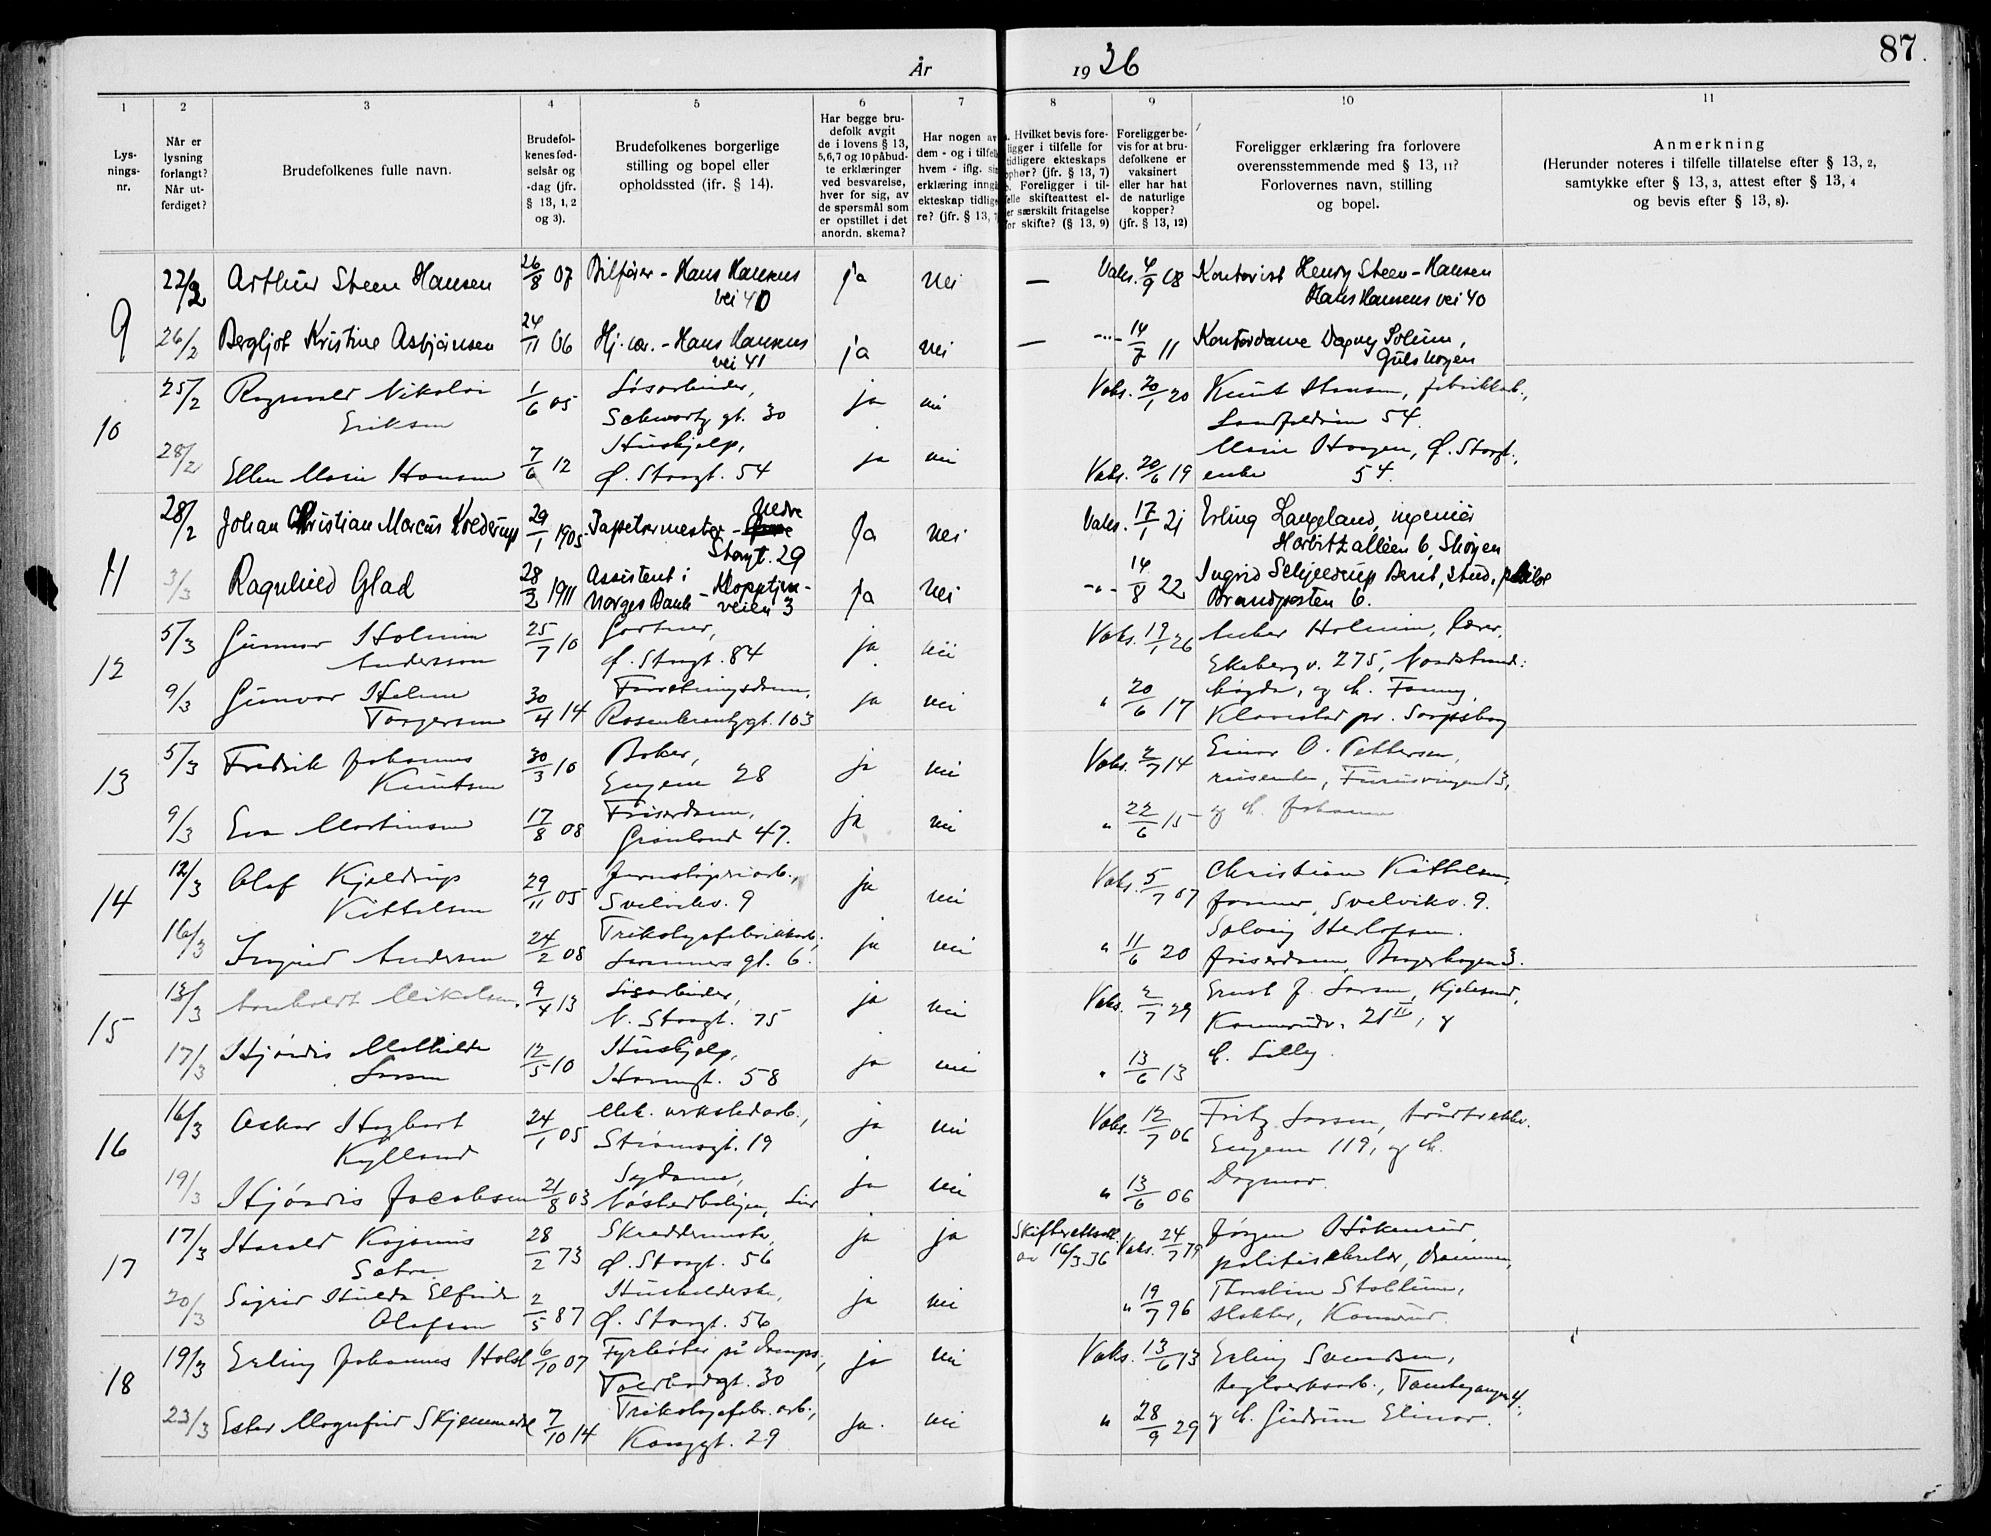 87.
År 1936
1 2 3 4 5 6 7 8 9 10 11
Lys-
nings-
nr.
Når er
lysning
forlangt?
Når ut-
ferdiget?
Brudefolkenes fulle navn.
Brudefol-
kenes fød-
selsår og
-dag (jfr.
§ 13, 1, 2
og 3).
Brudefolkenes borgerlige
stilling og bopel eller
opholdssted (ifr. § 14).
Har begge bru-
defolk avgit
de i lovens § 13,
5, 6, 7 og 10 påbud-
te erklæringer
ved besvarelse,
hver for sig, av
de spørsmål som
er opstillet i det
anordn. skema?
Har nogen av
dem - og i tilfelle
hvem - iflg.
erklæring inngå
ekteskap tidlig
re? (jfr. § 13,
Hvilket bevis fore-
ligger i tilfelle for
tidligere ekteskaps
ophør? (jfr. § 13, 7)
Foreligger i til-
felle skifteattest el-
er særskilt fritagelse
for skifte? (§ 13, 9)
Foreligger be-
vis for at bru-
defolkene er
vaksinert
eller har hat
de naturlige
kopper?
(jfr. § 13, 12)
Foreligger erklæring fra forlovere
overensstemmende med § 13, 11?
Forlovernes navn, stilling
og bopel.
Anmerkning
(Herunder noteres i tilfelle tillatelse efter § 13, 2,
samtykke efter § 13, 3, attest efter § 13, 4
og bevis efter § 13, 8).
9 22/2 Arthur Steen Hansen 26/8 07 Bilfører - Hans Hansens ja nei — Vaks. 4/9 08 Kontorist Henry Steen-Hansen
vei 40 Hans Hansens vei 40
26/2 Bergljot Kristine Asbjørnsen 24/11 06 Hj. vær. - Hans Hansens ja nei — -"- 14/7 11 Kontordame Dagny Solum,
vei 41 Gulskogen
10 25/2 Ragnvald Nikolai 1/6 05 Løsarbeider, ja nei Vaks. 20/1 20 Knut Hansen, fabrikkarb.,
Eriksen Schwartz gt. 30 54.
28/2 Ellen Marie Hansen 7/6 12 Hushjelp, ja nei Marie Haagen, Ø. Storgt.,
Ø. Storgt. 54 Vaks. 20/6 19 enke 54.
11 28/2 Johan Christian Marcus Kroderup 29/1 1905 Tapetsermester - Nedre Ja nei Vaks. 17/1 21 Erling Langeland, ingeniør
Storgt. 29 Harbitzalléen 6, Skøyen
3/3 Ragnhild Glad 28/2 1911 Assistent i Ja nei -"- 14/8 22 Ingrid Schjeldrup Berit, stud.
Norges Bank - Kloppetjern- Brandposten 6.
veien 3
12 5/3 Gunnar Holmin 25/7 10 Gartner, ja nei Vaks. 19/1 26 Anker Holmin, lærer,
Andersson Ø. Storgt. 84 Ekeberg v. 275, Nordstrand.
9/3 Gunvor Helene 30/4 14 Forretningsdame, ja nei " 20/6 17 og h. Fanny,
Torgersen Rosenkrantzgt. 103 Klavestad pr. Sarpsborg
13 5/3 Fredrik Johannes 30/3 10 Baker, ja nei Vaks. 2/7 14 Einar O. Pettersen,
Knutsen Engene 28
9/3 Eva Martinsen 17/8 08 Friserdame, ja nei " 22/6 15 og h. Johanne
Grønland 47.
14 12/3 Olaf Kjeldrup 29/11 05 Jernstøperiarb., ja nei Vaks. 5/7 07 Christian Kittelsen,
Kittelsen Svelvikv. 9 former, Svelvikv. 9.
16/3 Ingrid Andersen 24/2 08 Trikotagefabrikkarb., ja nei " 11/6 20 Solveig Herlofsen.
gt. 6. friserdame, Bragerhagen 3.
15 13/3 Mikalsen. 9/4 13 Løsarbeider, ja nei Vaks. 2/7 29 Ernst J. Larsen,
N. Storgt. 75 Konnerudv. 21 IV, og
17/3 Hjørdis Mathilde 12/5 10 Hushjelp, ja nei " 13/6 13 h. Lilly.
Larsen Havnegt. 58
16 16/3 Oskar Hagbart 24/1 05 Mek. verkstedarb., ja nei Vaks. 12/7 06 Fritz Larsen, trådtrekker.
Kylland Strømsgt. 19 Engene 119, og h.
19/3 Hjørdis Jacobsen 21/8 03 Sydame, ja nei " 13/6 06 Dagmar.
Lier
17 17/3 Harald Kajanus 28/2 73 Skreddermester, ja ja Skifteattest Vaks. 24/7 79 Jørgen Håkenrud,
Sætre Ø. Storgt. 56 av 16/3 36 politi Drammen,
20/3 Sigrid Hulda Elfrida 2/5 87 Husholderske, ja nei " 19/7 96
Olafsen Ø. Storgt. 56 slakter, Konnerud.
18 19/3 Erling Johannes Holst 6/10 07 Fyrbøter på damps., ja nei Vaks. 13/6 13 Erling Svendsen,
Tollbodgt. 30 teglverksarb.,
23/3 Ester Magnfrid Skjennerdal 7/10 14 Trikotagefabr. arb., ja. nei " 28/9 29 og h. Gudrun Elinor.
Konggt. 29